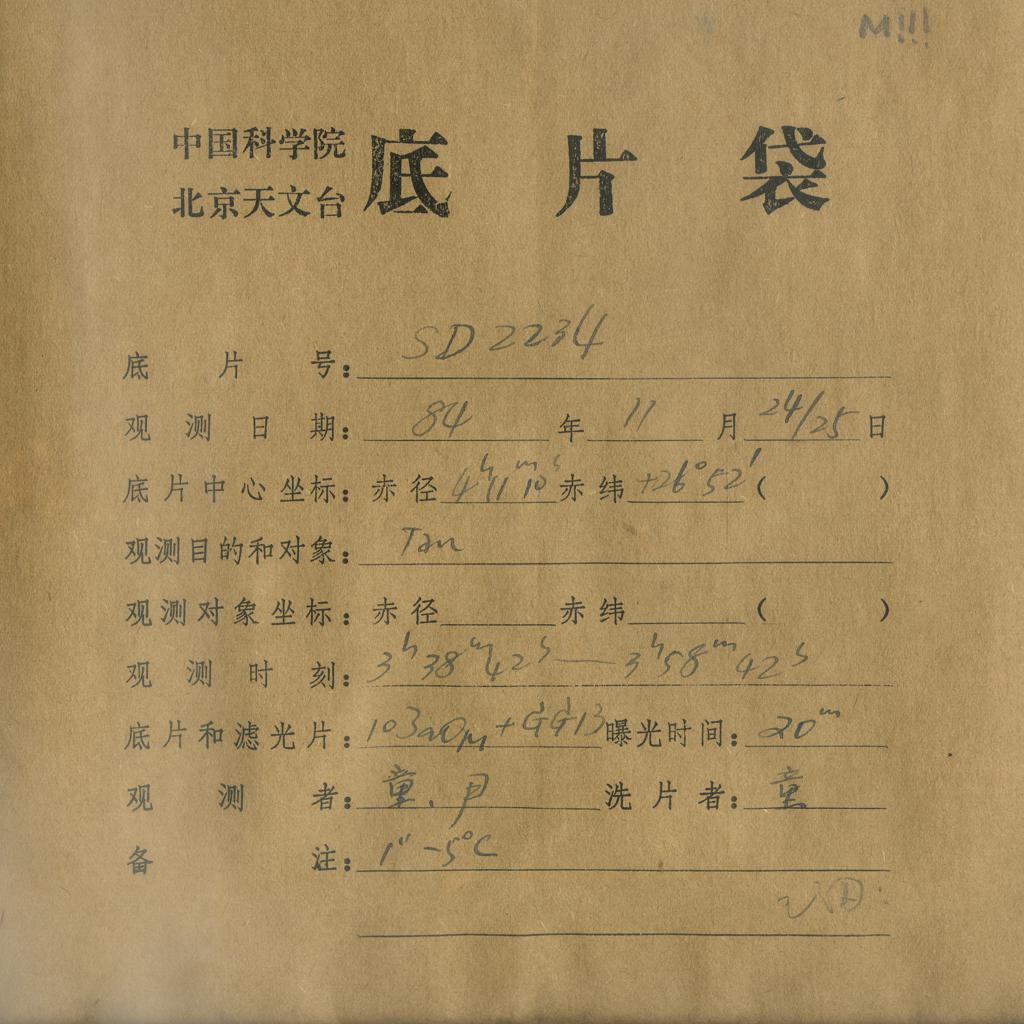 M!!!
中国科学院
北京天文台
底片袋
底片号：SD2234
观测日期：84年11月24/25日
底片中心坐标：赤径4h11m10s赤纬+26°52′（ ）
观测目的和对象：Tau
观测对象坐标：赤径 赤纬 （ ）
观测时刻：3h38m42s—3h58m42s
底片和滤光片：103aO+GG13曝光时间：20m
观测者：童、尹 洗片者：童
备注：1″ -5°C